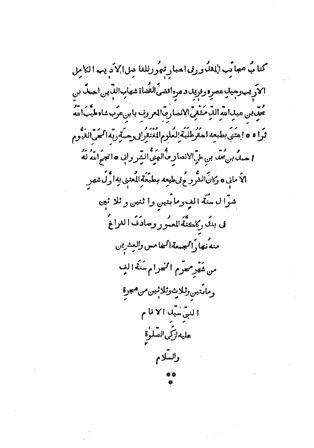 كتاب عجائب المقدور في اخبار تيمور للفاضل الاديب الكامل
الاريب وحيد عصره وفريد دهره اقضى القضاة شهاب الدين احمد بن
محمد بن عبد الله الدمشقى الانصارى المعروف بابن عرب شاه طيب الله
ثراه * اعتنى بطبعه احقر طلبة العلوم المفتقر الى رحمة ربه الحى القيوم
احمد بن محمد بن على الانصارى اليمنى الشروانى * انجح الله له
الامانى * وكان الشروع فى طبعه بمطبعة المعتنى به اول شهر
شوال سنة الف ومائتين واثنين وثلاثين
فى بندر كلكتة المعمور وصادف الفراغ
منه نهار الجمعة الخامس والعشرين
من شهر محرم الحرام سنة الف
ومائتين وثلاث وثلاثين من هجرة
النبى سيد الانام
عليه ازكى الصلوة
والسلام